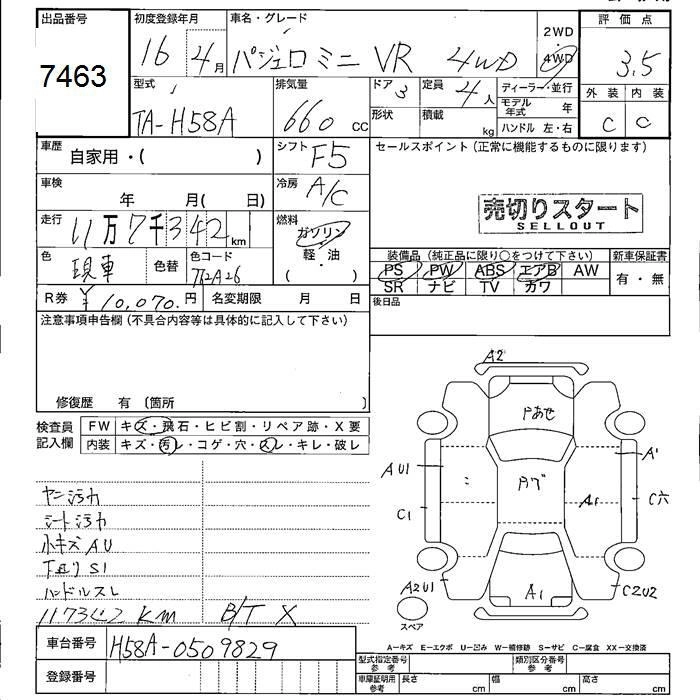 出品番号 初度登録年月 車名・グレード 2WD 4WD 評価点
7463 16年 4月 パジェロミニ VR 4WD 3.5
型式 TA-H58A 排気量 660 cc
ドア 3 定員 4人 ディーラー・並行
形状 積載 kg モデル年式 年
ハンドル 左・右
外装 内装
C C
車歴 自家用・( ) シフト F5
セールスポイント (正常に機能するものに限ります)
車検 年 月( 日) 冷房 A/C
売切りスタート
SELLOUT
走行 11万7千342 km 燃料 ガソリン 軽・油 ( )
色 現車 色替 色コード T62A26
装備品 (純正品に限り○をつけて下さい) 新車保証書
PS PW ABS エアB AW 有・無
SR ナビ TV カワ
R券 ¥10,070.円 名変期限 月 日
後日品
注意事項申告欄 (不具合内容等は具体的に記入して下さい)
修復歴 有 〔箇所 〕
検査員記入欄 FW キズ・飛石・ヒビ割・リペア跡・X要
内装 キズ・汚レ・コゲ・穴・スレ・キレ・破レ
ヤニ汚れ
シート汚れ
小キズ AU
下廻り S1
ハンドルスレ
117342 KM B/T X
A2
Pあせ
AU1
A'
C1
A1
C穴
A2U1
A1
C2U2
スペア
車台番号 H58A-0509829
登録番号
A-キズ E-エクボ U-凹み W-補修跡 S-サビ C-腐食 XX-交換済
型式指定番号 参考 類別区分番号 参考
車庫証明用 参考 長さ cm 幅 cm 高さ cm